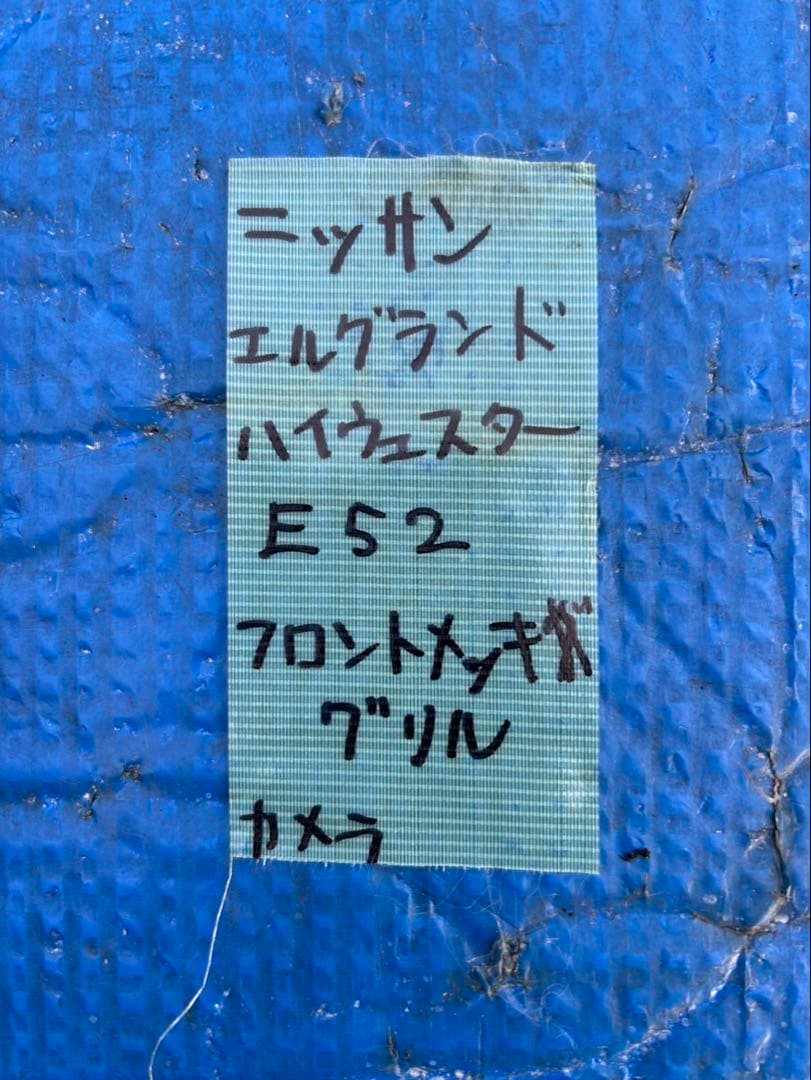 ニッサン
エルグランド
ハイウェスター
E52
フロントメッキ
グリル
カメラ